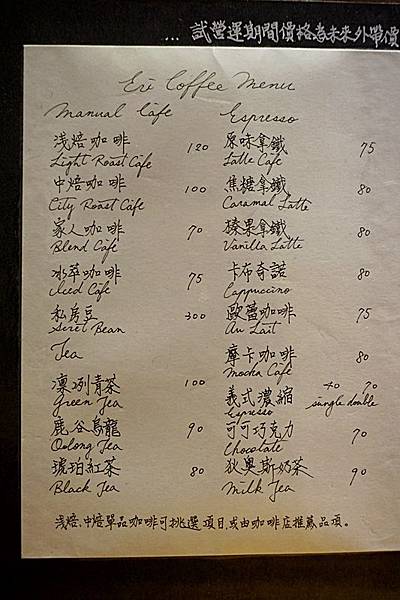 ... 試營運期間價格為未來外帶價
Eri Coffee Menu
Manual Cafe
淺焙咖啡 120
Light Roast Cafe
中焙咖啡 100
City Roast Cafe
家人咖啡 70
Blend Cafe
冰萃咖啡 75
Iced Cafe
私房豆 300
Secret Bean
Tea
凜冽青茶 100
Green Tea
鹿谷烏龍 90
Oolong Tea
琥珀紅茶 80
Black Tea
Espresso
原味拿鐵 75
Latte Cafe
焦糖拿鐵 80
Caramal Latte
榛果拿鐵 80
Vanilla Latte
卡布奇諾 80
Cappuccino
歐蕾咖啡 75
Au Last
摩卡咖啡 80
Mocha Cafe
義式濃縮 40 70
Espresso single double
可可巧克力 70
Chocolate
狄奧斯奶茶 90
Milk Tea
淺焙、中焙單品咖啡可挑選項目,或由咖啡店推薦品項。